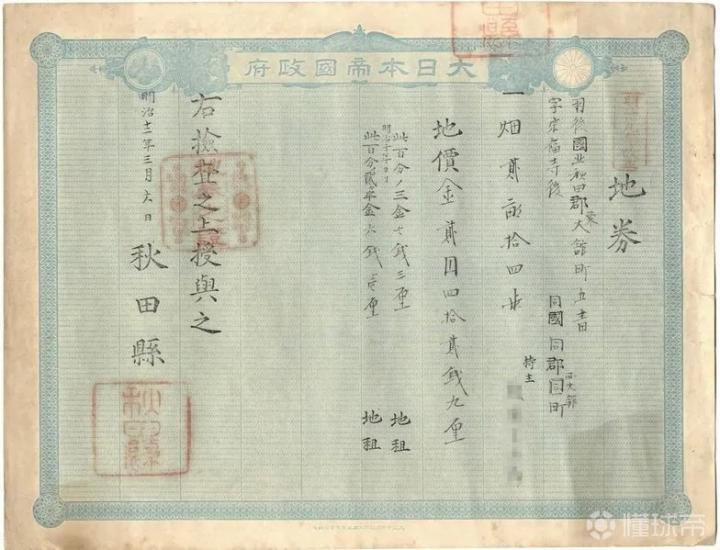 大日本帝國政府
地券
羽後國北秋田郡東大舘町五十番
字宗福寺後
同國同郡同町
持主
一畑貳畝拾四歩
地價金貳圓四拾貳銭九厘
此百分ノ三金七銭三厘 地租
明治十年ヨリ
此百分ノ貳半金六銭壱厘 地租
右檢査之上授與之
明治十二年三月六日
秋田縣
懂球帝